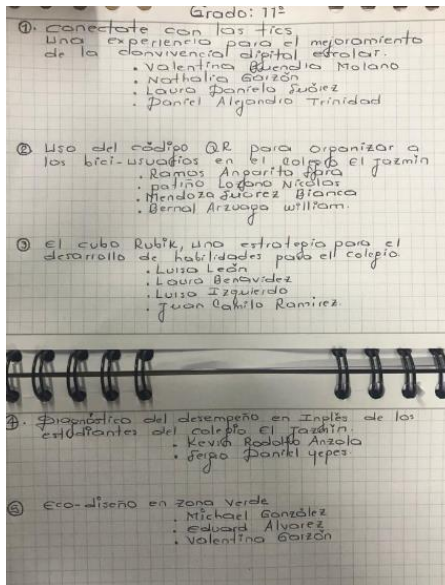 Grado: 11º
①. conectate con las tics
una experiencia para el mejoramiento
de la convivencia digital escolar.
• Valentina Buendia Molano
• Nathalia Garzón
• Laura Daniela Suárez
• Daniel Alejandro Trinidad
② Uso del código QR para organizar a
los bici-usuarios en el colegio El Jazmin
• Ramos Angarita Sara
• patiño Lozano Nicolas
• Mendoza Suárez Bianca
• Bernal Arzuaga william.
③ El cubo Rubik, una estrategia para el
desarrollo de habilidades para el colegio.
• Luisa León
• Laura Benavidez
• Luisa Izquierdo
• Juan Camilo Ramirez.
4. Diagnóstico del desempeño en Inglés de los
estudiantes del colegio El Jazmin.
• Kevin Rodolfo Anzola
• Sergio Daniel yepes.
⑤ Eco-diseño en zona verde
• Michael González
• Eduard Alvarez
• Valentina Garzón